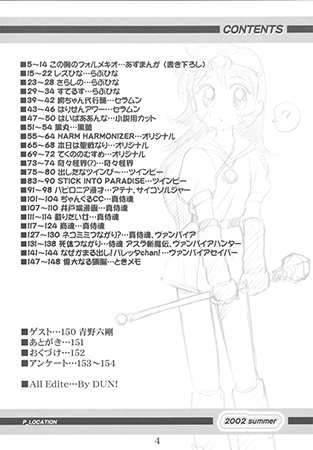 CONTENTS
■5〜14 この胸のフォルメキオ…あずまんが(書き下ろし)
■15〜22 レズひな…らぶひな
■23〜28 さらしの…らぶひな
■29〜34 すてるす…らぶひな
■39〜42 網ちゃん代行誠…セラムン
■43〜46 はりせんアワー…セラムン
■47〜50 はいぱああんな…小説用カット
■51〜54 黒丸…黒闇
■55〜64 HARM HARMONIZER…オリジナル
■65〜68 本日は聖戦なり…オリジナル
■69〜72 てくののむすめ…オリジナル
■73〜74 奇々怪界(?)…奇々怪界
■75〜80 出しだなツインび〜…ツインビー
■83〜90 STICK INTO PARADISE…ツインビー
■91〜98 バビロニア漫才…アテナ、サイコソルジャー
■101〜104 ちゃんぐるCC…真侍魂
■107〜110 井戸端漫画…真侍魂
■111〜114 斬りたいけ…真侍魂
■117〜124 商魂…真侍魂
■127〜130 ネコミミつながり?…真侍魂、ヴァンパイア
■131〜138 死体つながり…侍魂 アスラ斬魔伝、ヴァンパイアハンター
■141〜144 なぜかまる出し!バレッタchan!…ヴァンパイアセイバー
■147〜148 偉大なる頭脳…ときメモ
■ゲスト…150 青野六剛
■あとがき…151
■おくづけ…152
■アンケート…153〜154
■All Edite…By DUN!
?
P_LOCATION
2002 summer
4